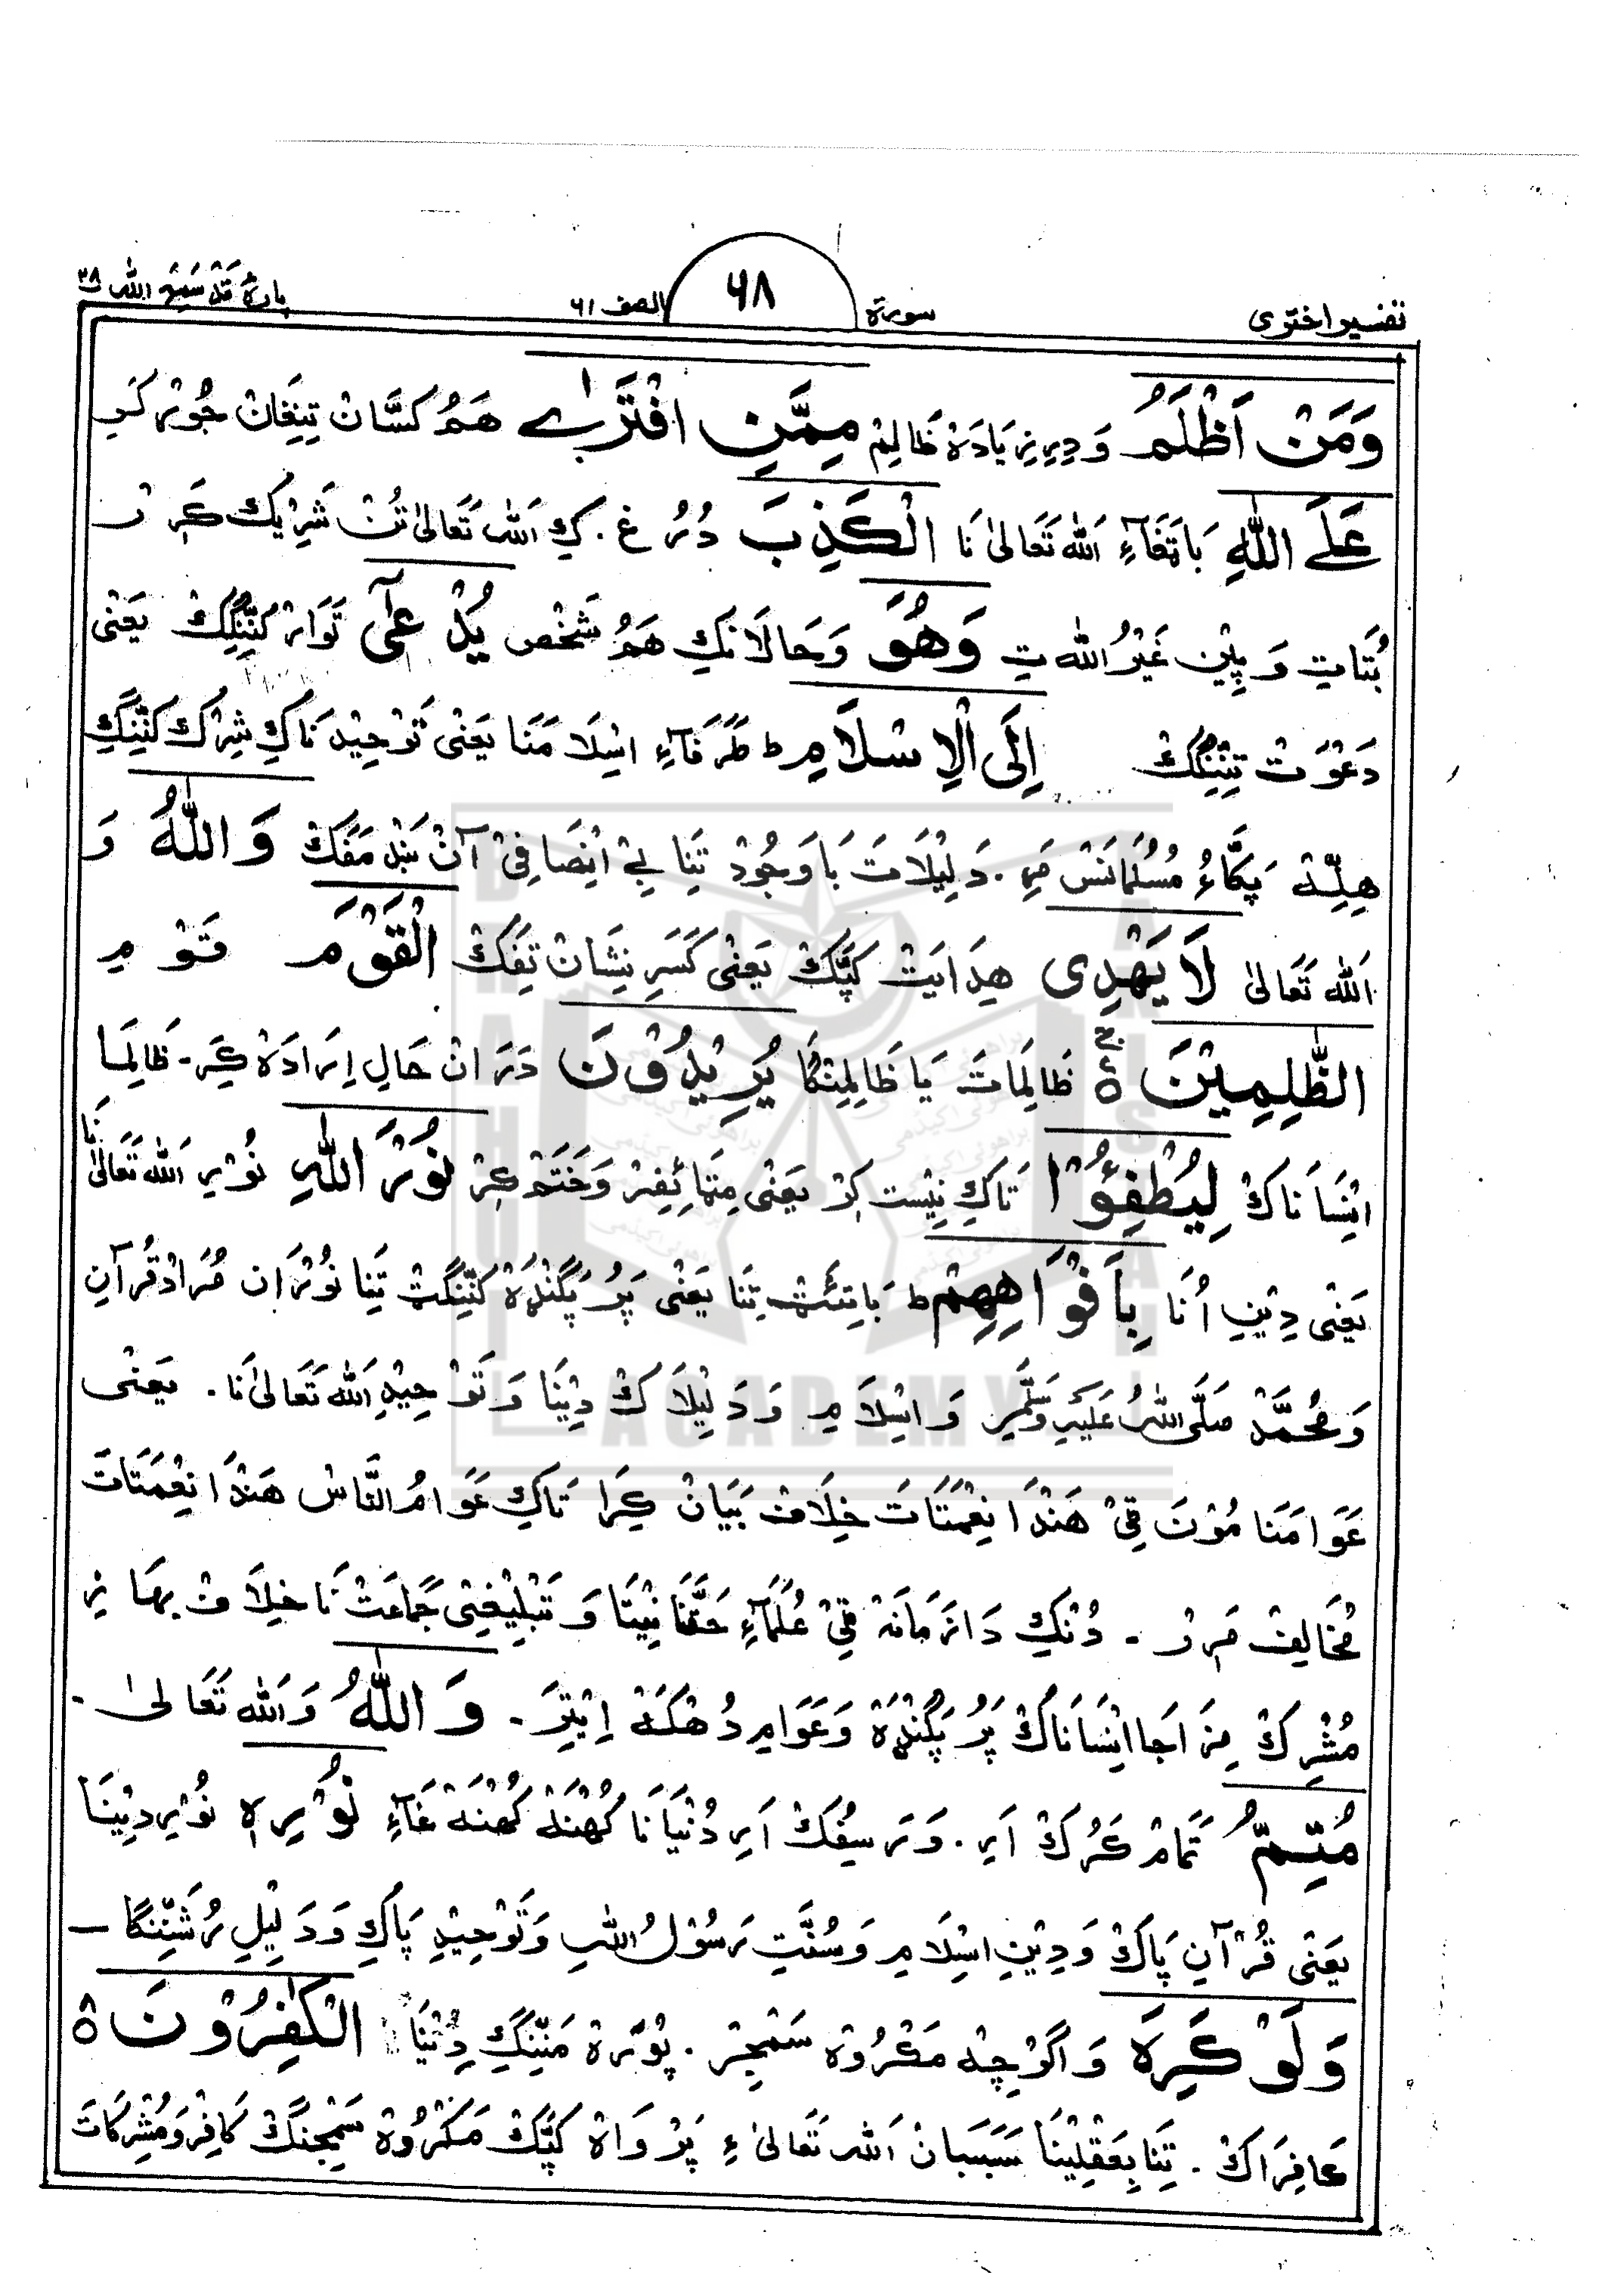 تفسیر اختری
سورة
۶۸
الصف ۶۱
پارۀ قَدْ سَمِعَ اللّٰه ۲۸
وَمَنْ اَظْلَمُ وَدِیرِ زِیَادَہ ظَالِمْ مِمَّنِ افْتَرٰے هَمُ کَسَّانْ تِینِغَانْ جُوڑْ کَے
عَلَے اللّٰهِ بَاتَغَآءِ اَللّٰه تَعَالیٰ نَا الْکَذِبَ دُرُ غ. کِ اَللّٰه تَعَالیٰ تُنْ شَرِیْك کَر
بُتَاتِ وَ پِیْنِ غَیْرُ اللّٰه تِ وَهُوَ وَحَالَانکِ هَمُ شَخْص یُدْعٰٓی تَوَارْ کَنِّنِگِكْ یَعْنٰی
دَعْوَتْ تِنِنگِكْ اِلَی الْاِسْلَامِ ط طَرَفَآءِ اِسْلَا مَنَا یَعْنٰی تَوْحِیْدِ نَاکِ شِرْكْ کَنِّنِگِ
هِلِّتْ پَکَّاءُ مُسُلْمَانَسْ مَرِ. دَلِیْلَاتَ بَا وَجُوْدْ تِنَا بِےْ اِنْصَافِیْ آنْ بَنْدِ مَفَكْ وَاللّٰهُ وَ
اَللّٰه تَعَالیٰ لَا یَهْدِی هِدَایَتْ کَپَّكْ یَعْنٰی کَسَرِ نِشَانْ تِفَكْ الْقَوْمَ قَوْمِ
الظّٰلِمِیْنَ ۀ ظَالِمَاتَ یَا ظَالِمِنْگا یُرِیْدُوْنَ دَرَ انْ حَالِ اِرَادَہْ کِرَ۔ ظَالِمَا
اِنْسَانَاكْ لِیُطْفِئُوْا تَاکِ نِیْست کِرْ یَعْنٰی مِتَائِفِرْ وَخَتَمْ کِرْ نُوْرَ اللّٰهِ نُوْرِ اَللّٰه تَعَالیٰ نَا
یَعْنٰی دِیْنِ اُنَا بِاَفْوَاهِهِمْ ط بَاتِئَتْ تِنَا یَعْنٰی پَرُ پَگَنْڈَہْ کَنِّنگَتْ تِنَا نُوْرَان مُرَادْ قُرْآنِ
وَمُحَمَّدْ صَلَّی اللّٰهُ عَلَیْہِ وَسَلَّمِرِ وَاِسْلَامِ وَدَلِیْلَاكْ دِیْنَا وَتَوْحِیْدِ اَللّٰه تَعَالیٰ نَا. یَعْنٰی
عَوَامَنَا مُوْنَ قِیْ هَنْدَا نِعْمَتَاتَ خِلَافْ بَیَانْ کِرَا تَاکِ عَوَامُ النَّاسْ هَنْدَا نِعْمَتَاتَ
مُخَالِفْ مَرِرْ ۔ دُنْکِ دَا زَمَانَہْ قِیْ عُلَمَآءِ حَقَّانِیْتَا وَتَبْلِیْغِیْ جَمَاعَتْ نَا خِلَافْ بهَا زِ
مُشْرِكْ مِزَ اجَا اِنْسَانَاكْ پَرُ پَگَنْڈَہْ وَعَوَامِ دُهْکَہْ اِیْتِرَ۔ وَاللّٰهُ وَاَللّٰه تَعَالیٰ۔
مُتِمُّ تَمَامْ کَرُكْ اَرِ. وَرَسِیفُكْ اَرِ دُنْیَانَا کُهْنَہْ کُهْنَہْ غَآءِ نُوْرِہٖ نُوْرِ دِیْنَا
یَعْنٰی قُرْآنِ پَاكْ وَدِیْنِ اِسْلَامِ وَسُنَّتِ رَسُوْلُ اللّٰہِ وَتَوْحِیْدِ پَاکِ وَدَلِیْلِ رُشَنِّنگَا ۔
وَلَوْ کَرِہَ وَاگَرْچِہْ مَکْرُوْہْ سَمْجِرْ. پُوْرَہْ مَنِّنِگِ دِیْنَا الْکٰفِرُوْنَ ۀ
عَافِرَاكْ. تِنَا بِعَقْلِیْنَا سَبَبَانْ اَللّٰه تَعَالیٰ ءِ پَرْوَاہْ کَپَّكْ مَکْرُوْہْ سَمْجِنگَكْ کَافِرْ وَمُشْرِکَاتَ